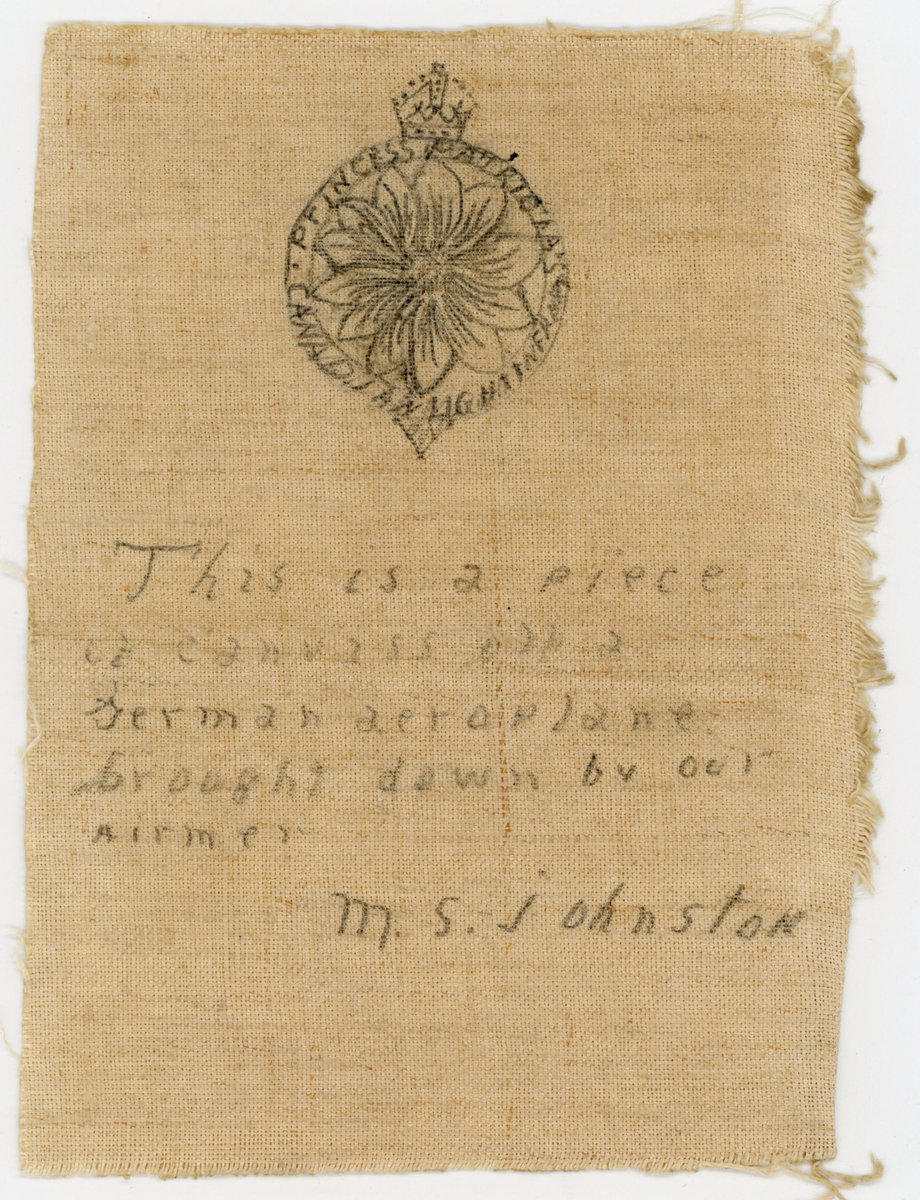 PRINCESS PATRICIA'S
CANADIAN LIGHT INFANTRY
This is a piece
of canvass off a
German aeroplane
brought down by our
Airmen
M. S. Johnston